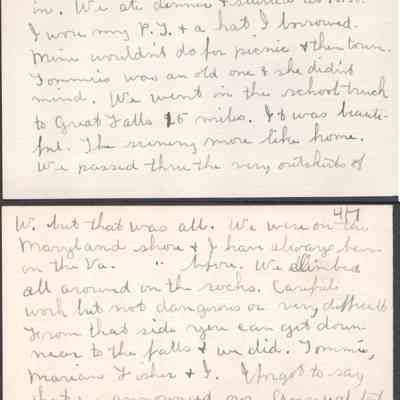 in. We ate dinner & started at
I wore my P.J. & a hat I borrowed.
Mine wouldn't do for picnic & then town.
Tommies was an old one & she didn't
mind. We went in the school truck
to Great Falls 15 miles. It was beauti-
ful. The scenery more like home.
We passed thru the very outskirts of
4/7
W. but that was all. We were on the
Maryland shore & I have always been
on the Va. " before. We climbed
all around on the rocks. Careful
work but not dangerous or very difficult
From that side you can get down
near to the falls & we did. Tommie,
Marian Fosher & I. I forgot to say
that